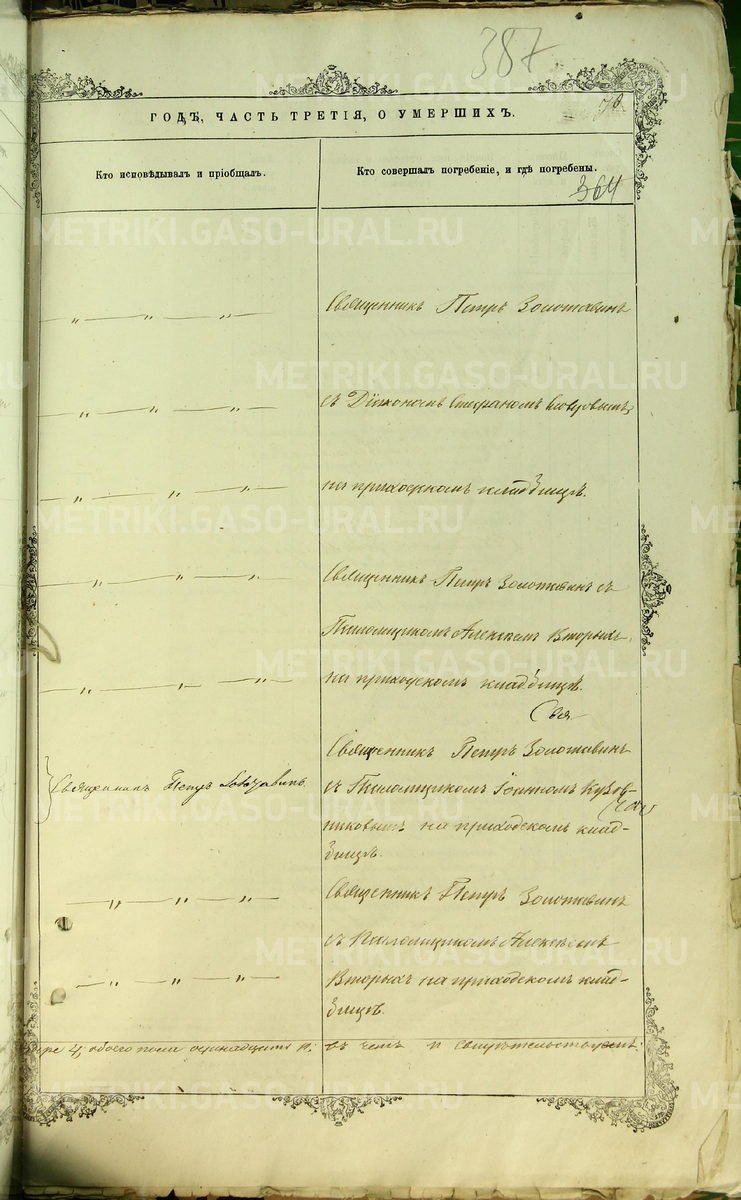 387
70
ГОДѢ, ЧАСТЬ ТРЕТІЯ, О УМЕРШИХЪ.
Кто исповѣдывалъ и пріобщалъ.
Кто совершалъ погребеніе, и гдѣ погребены.
364
Священникъ Петръ Золотавинъ
съ Діакономъ Стефаномъ
на приходскомъ кладбищѣ.
Священникъ Петръ Золотавинъ съ
Псаломщикомъ Алексѣемъ Вторыхъ
на приходскомъ кладбищѣ.
Свя
Священникъ Петръ Золотавинъ
Священникъ Петръ Золотавинъ
съ Псаломщикомъ
на приходскомъ клад-
бищѣ.
Священникъ Петръ Золотавинъ
съ Псаломщикомъ Алексѣемъ
Вторыхъ на приходскомъ клад-
бищѣ.
4, обоего пола одинадцать
въ чемъ и свидѣтельствуемъ:
METRIKI.GASO-URAL.RU